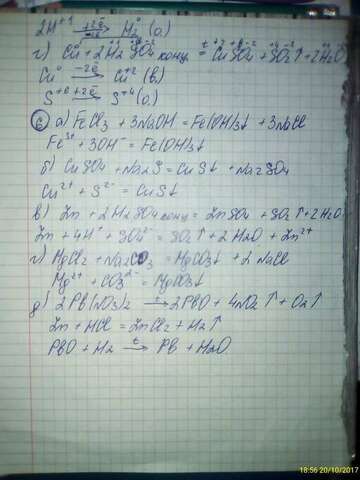 2H⁺¹ +2ē → H₂⁰ (о.)
г) Cu⁰ + 2H₂SO₄ конц. =t CuSO₄ + SO₂↑ + 2H₂O
Cu⁰ -2ē → Cu⁺² (в.)
S⁺⁶ +2ē → S⁺⁴ (о.)
⑥ а) FeCl₃ + 3NaOH = Fe(OH)₃↓ + 3NaCl
Fe³⁺ + 3OH⁻ = Fe(OH)₃↓
б) CuSO₄ + Na₂S = CuS↓ + Na₂SO₄
Cu²⁺ + S²⁻ = CuS↓
в) Zn + 2H₂SO₄ конц = ZnSO₄ + SO₂↑ + 2H₂O
Zn + 4H⁺ + SO₄²⁻ = SO₂↑ + 2H₂O + Zn²⁺
г) MgCl₂ + Na₂CO₃ = MgCO₃↓ + 2NaCl
Mg²⁺ + CO₃²⁻ = MgCO₃↓
д) 2Pb(NO₃)₂ t→ 2PbO + 4NO₂↑ + O₂↑
Zn + HCl = ZnCl₂ + H₂↑
PbO + H₂ t→ Pb + H₂O
18:56 20/10/2017